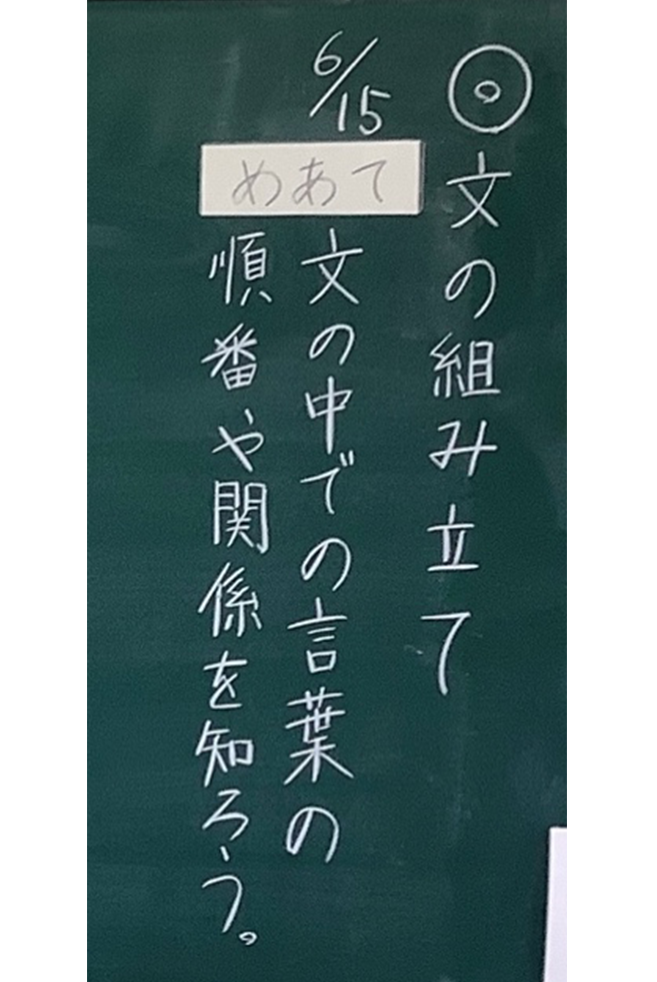 ◎文の組み立て
6/15
めあて
文の中での言葉の
順番や関係を知ろう。